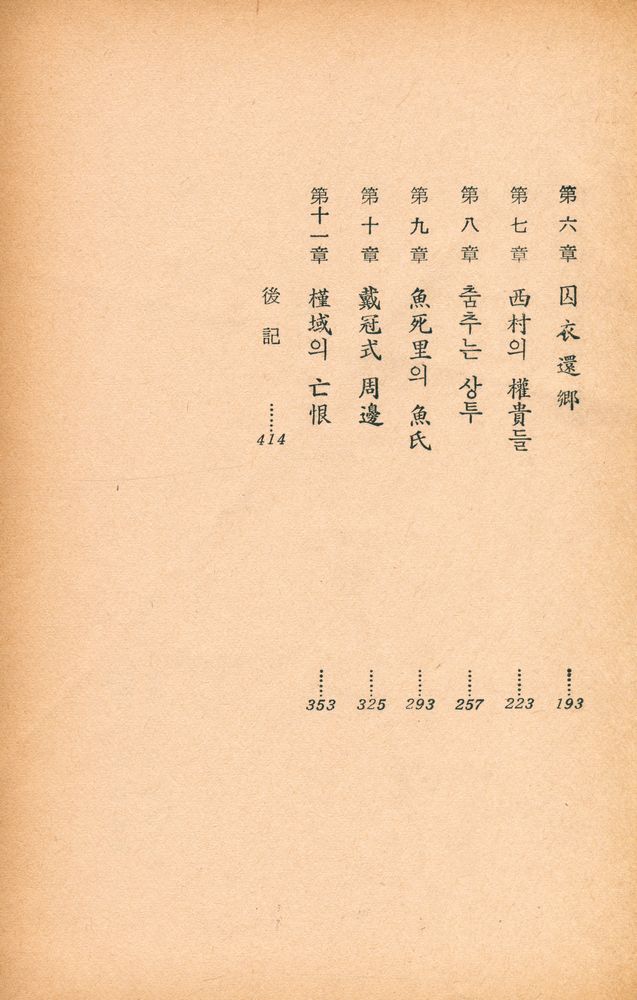 第六章 囚衣還鄕 ……193
第七章 西村의 權貴들 ……223
第八章 춤추는 상투 ……257
第九章 魚死里의 魚氏 ……293
第十章 戴冠式 周邊 ……325
第十一章 槿域의 亡恨 ……353
後記 ……414